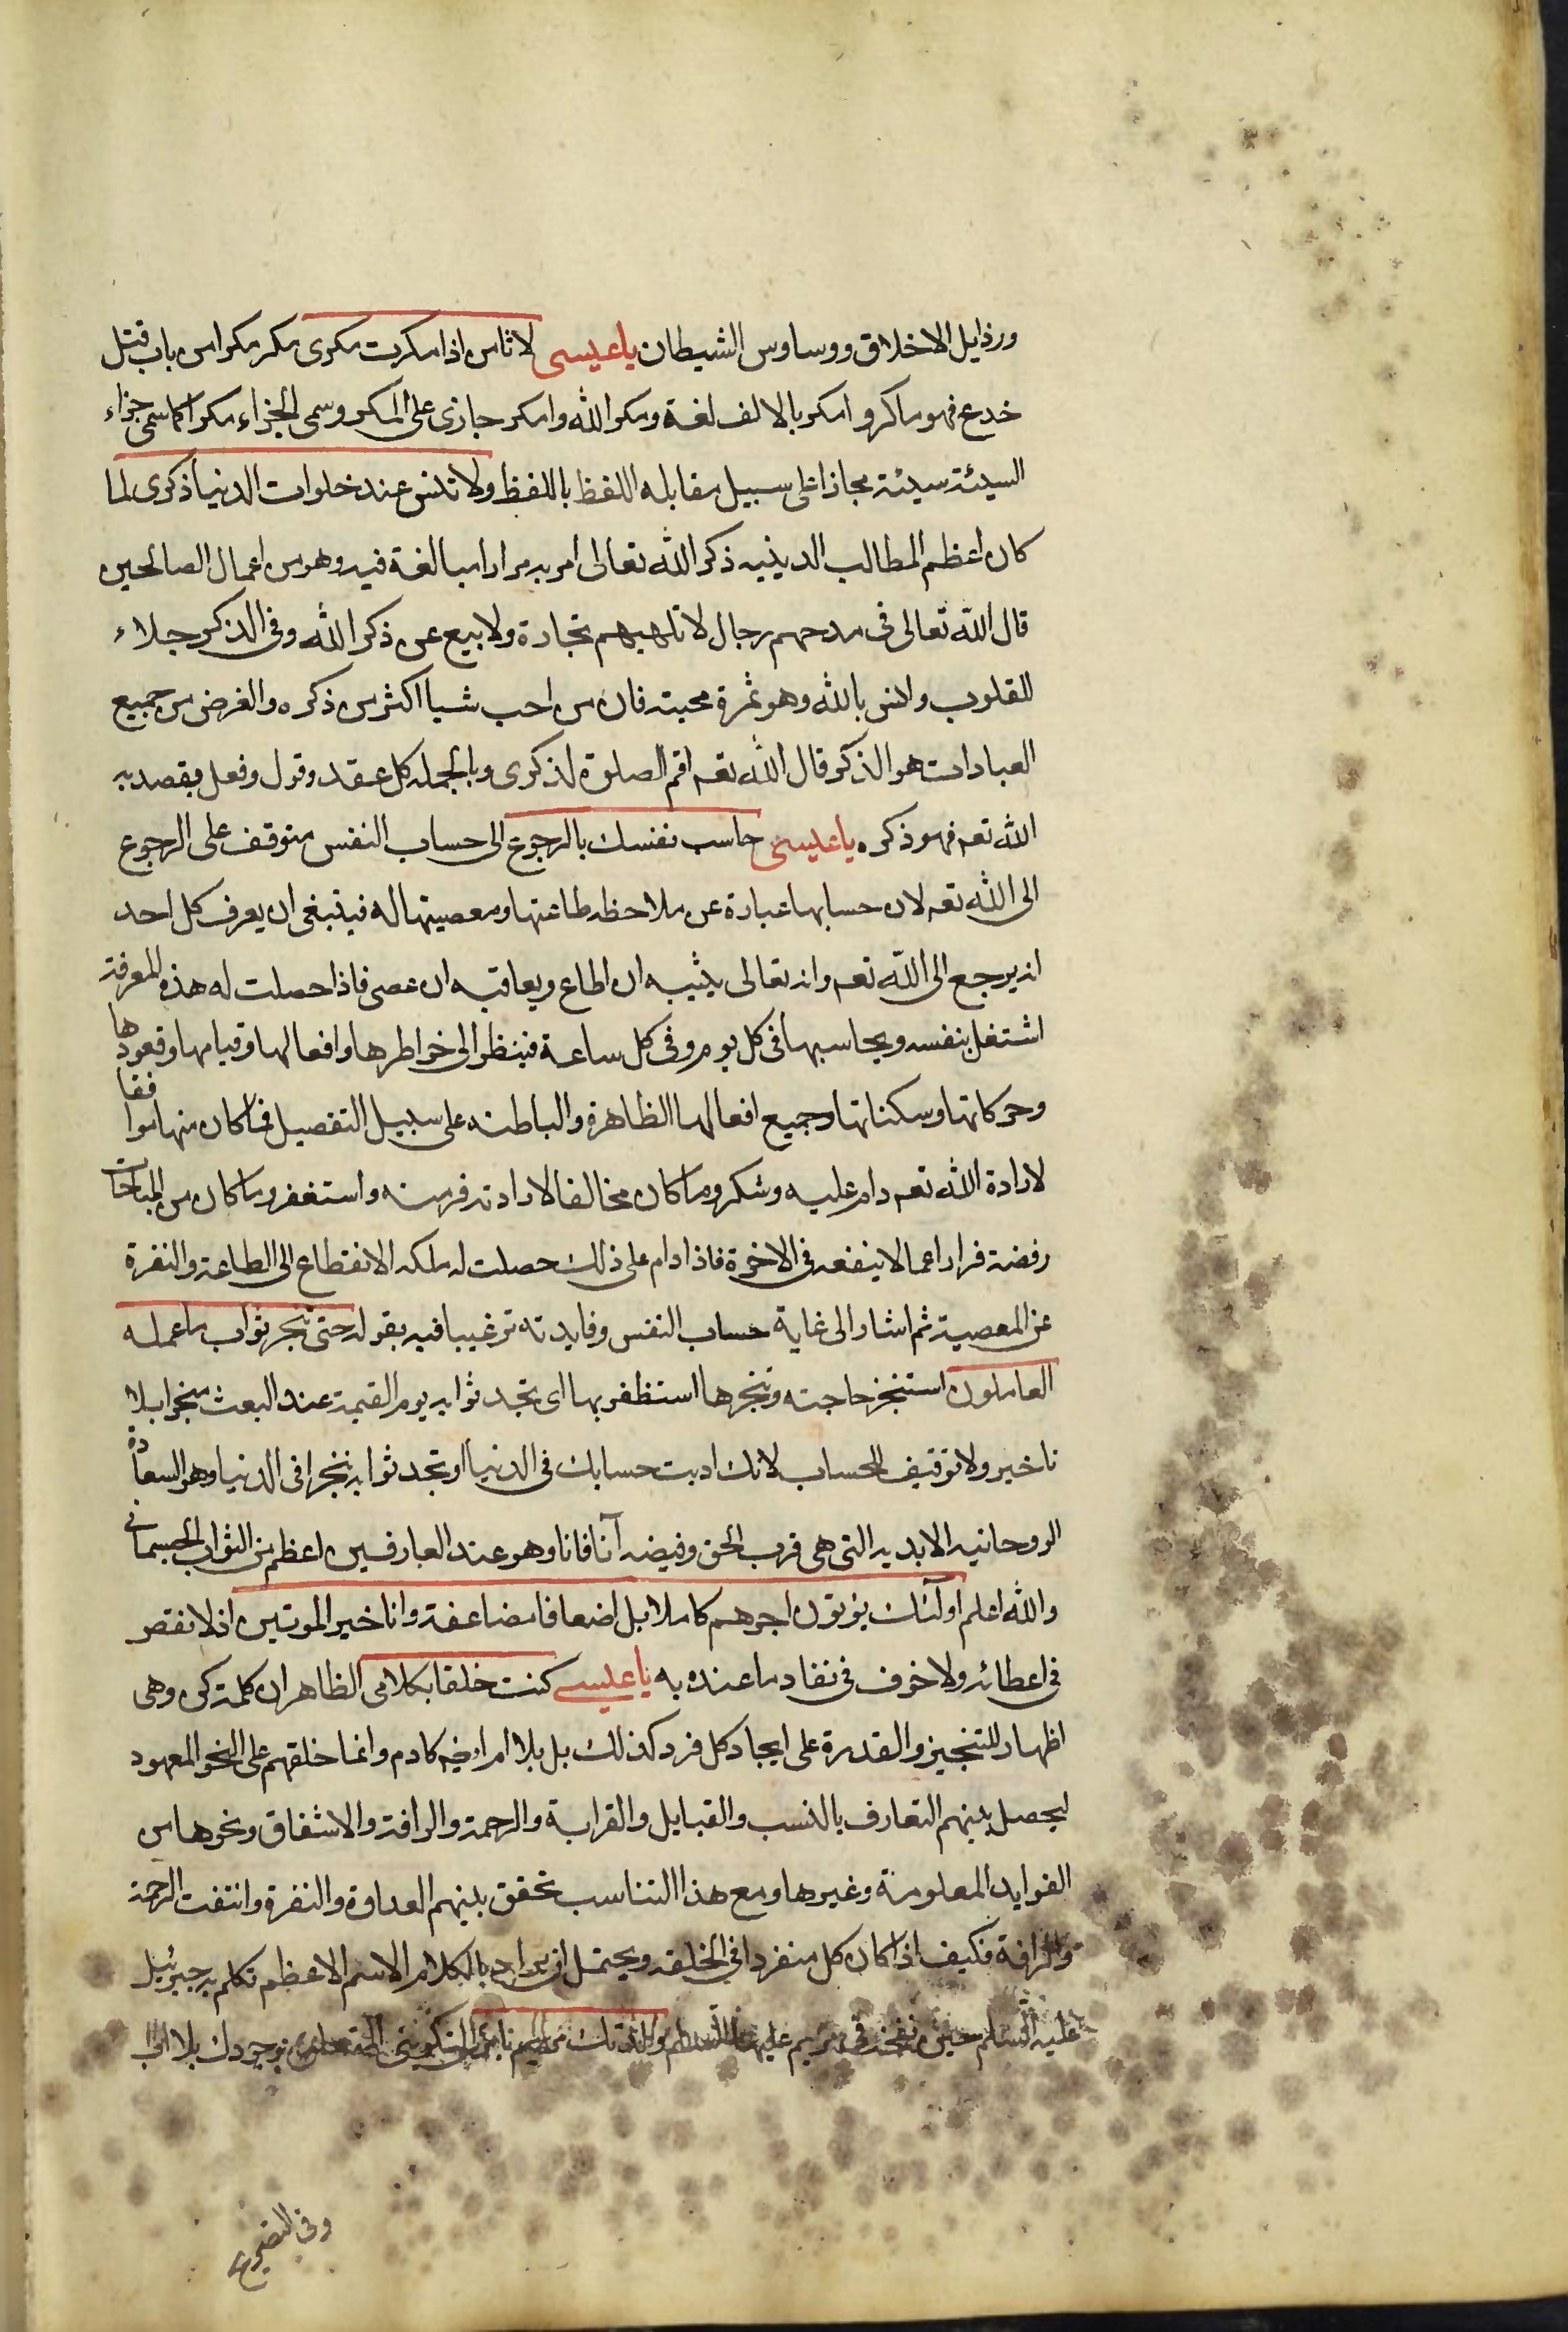 ورذايل الاخلاق ووساوس الشيطان يا عيسى لا تامن اذا مكرت مكرى مكر مكرا من باب قتل
خدع فهو ماكر وامكر بالالف لغة ومكر الله وامكر جازى على المكر وسمى الجزاء مكرا كما سمى جزاء
السيئة سيئة مجازا على سبيل مقابله اللفظ باللفظ ولا تنس عند خلوات الدنيا ذكرى لما
كان اعظم المطالب الدينيه ذكر الله تعالى امر به مرارا مبالغة فيه وهو من اعمال الصالحين
قال الله تعالى فى مدحهم رجال لا تلهيهم تجارة ولا بيع عن ذكر الله وفى الذكر جلاء
للقلوب وانس بالله وهو ثمرة محبته فان من احب شيا اكثر من ذكره والغرض من جميع
العبادات هو الذكر قال الله تعم اقم الصلوة لذكرى وبالجمله كل عقد وقول وفعل يقصد به
الله تعم فهو ذكره يا عيسى حاسب نفسك بالرجوع الى حساب النفس متوقف على الرجوع
الى الله تعم لان حسابها عبارة عن ملاحظه طاعتها ومعصيتها له فينبغى ان يعرف كل احد
انه يرجع الى الله تعم وانه تعالى يثيبه ان اطاع ويعاقبه ان عصى فاذا حصلت له هذه المعرفة
اشتغل بنفسه ويحاسبها فى كل يوم وفى كل ساعة فينظر الى خواطرها وافعالها وقيامها وقعودها
وحركاتها وسكناتها وجميع افعالها الظاهرة والباطنه على سبيل التفصيل فما كان منها موافقا
لارادة الله تعم دام عليه وشكر وما كان مخالفا لارادته فر منه واستغفر وما كان من المباحات
رفضه فرارا عما لا ينفعه فى الاخرة فاذا دام على ذلك حصلت له ملكه الانقطاع الى الطاعة والنفرة
عن المعصية ثم اشار الى غاية حساب النفس وفايدته ترغيبا فيه بقوله حتى تنجز ثواب ما عمله
العاملون استنجز حاجته وتنجزها استظفر بها اى تجد ثوابه يوم القيمة عند البعث منجزا بلا
تاخير ولا توقيف للحساب لانك اديت حسابك فى الدنيا او تجد ثوابه منجزا فى الدنيا وهو السعادة
الروحانيه الابديه التى هى قرب الحق وفيضه آنا فانا وهو عند العارفين اعظم من الثواب الجسمانى
والله اعلم اولئك يؤتون اجرهم كاملا بل اضعافا مضاعفة وانا خير الموتين اذ لا نقص
فى اعطائه ولا خوف فى نفاد ما عنده به يا عيسى كنت خلقا بكلامى الظاهر ان كلمة كن وهى
اظهار للتنجيز والقدرة على ايجاد كل فرد كذلك بل بلا ام ايضا كادم وانما خلقهم على النحو المعهود
ليحصل بينهم التعارف بالنسب والقبايل والقرابة والرحمة والرافة والاشفاق ونحوها من
الفوايد المعلومة وغيرها ومع هذا التناسب تحقق بينهم العداوة والنفرة وانتفت الرحمة
والرافة فكيف اذا كان كل منفردا فى الخلقه ويحتمل ان يراد بالكلام الاسم الاعظم تكلم به جبرئيل
عليه السلم حين نفخ فى مريم عليها السلام ولدتك مريم بامرى التكوينى المتعلق بوجودك بلا اب
وفى التصريح